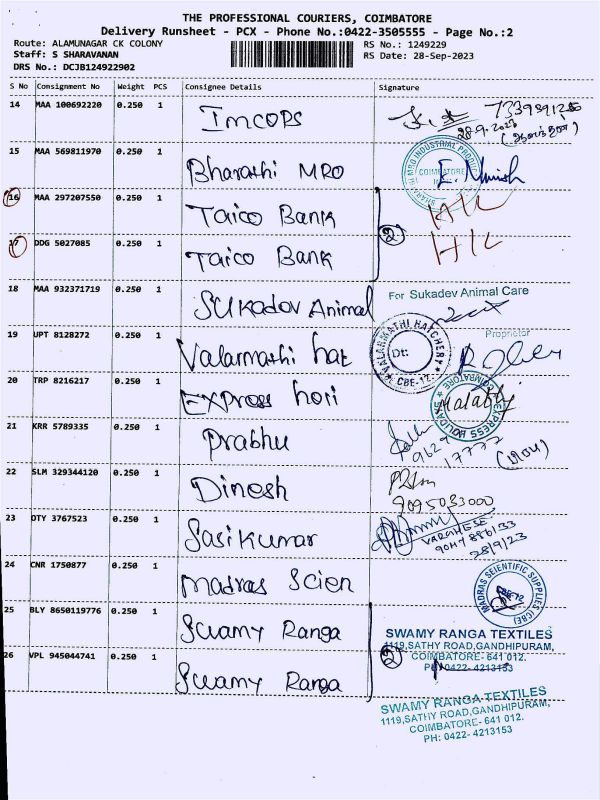 THE PROFESSIONAL COURIERS, COIMBATORE
Delivery Runsheet - PCX - Phone No.:0422-3505555 - Page No.:2
Route: ALAMUNAGAR CK COLONY RS No.: 1249229
Staff: S SHARAVANAN RS Date: 28-Sep-2023
DRS No.: DCJB124922902
S No Consignment No Weight PCS Consignee Details Signature
14 MAA 100692220 0.250 1 Imcops
28.9.2023
15 MAA 569811970 0.250 1 Bharathi MRO
BHARATHI MRO INDUSTRIAL PRODUC
COIMBATORE
16 MAA 297207550 0.250 1 Taico Bank H/L
2
17 DDG 5027085 0.250 1 Taico Bank H/L
18 MAA 932371719 0.250 1 Sukadev Animal
For Sukadev Animal Care
Proprietor
19 UPT 8128272 0.250 1 Valarmathi hat
VALARMATHI HATCHERY
Dt:
CBE-12
20 TRP 8216217 0.250 1 Express holi
EXPRESS HOLIDAYS COIMBATORE
21 KRR 5789335 0.250 1 Prabhu
9629
17777
22 SLM 329344120 0.250 1 Dinesh
9095033000
23 OTY 3767523 0.250 1 Sasikumar
VARGHESE
9047886133
28/9/23
24 CNR 1750877 0.250 1 Madras Scien
MADRAS SCIENTIFIC SUPPLIES (CBE)
CBE-12
25 BLY 8650119776 0.250 1 Swamy Ranga
SWAMY RANGA TEXTILES
1119,SATHY ROAD,GANDHIPURAM,
COIMBATORE- 641 012.
PH:0422- 4213153
2
26 VPL 945044741 0.250 1 Swamy Ranga
SWAMY RANGA TEXTILES
1119,SATHY ROAD,GANDHIPURAM,
COIMBATORE- 641 012.
PH: 0422- 4213153